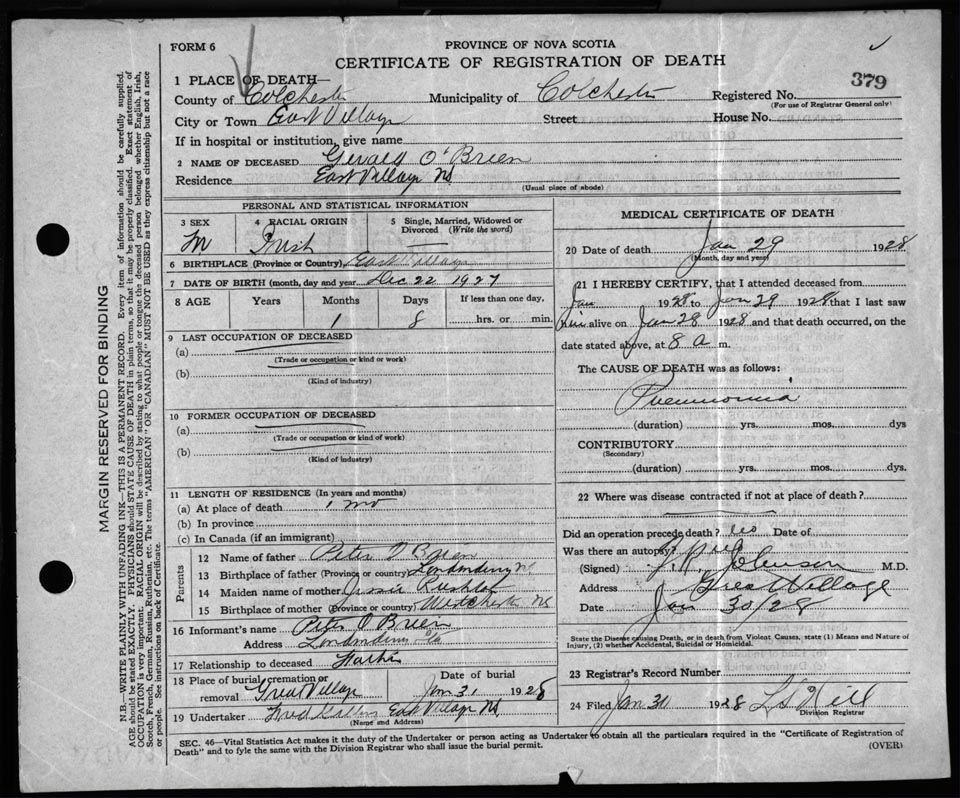 FORM 6
PROVINCE OF NOVA SCOTIA
CERTIFICATE OF REGISTRATION OF DEATH
379
1 PLACE OF DEATH—
County of Colchester Municipality of Colchester Registered No.
(For use of Registrar General only)
City or Town East Village Street House No.
If in hospital or institution, give name
2 NAME OF DECEASED Gerald O'Brien
Residence East Village NS
(Usual place of abode)
PERSONAL AND STATISTICAL INFORMATION
3 SEX 4 RACIAL ORIGIN 5 Single, Married, Widowed or Divorced (Write the word)
M Irish —
6 BIRTHPLACE (Province or Country) East Village
7 DATE OF BIRTH (month, day and year) Dec 22 1927
8 AGE Years Months Days If less than one day,
1 8 hrs. or min.
9 LAST OCCUPATION OF DECEASED
(a)
(Trade or occupation or kind or work)
(b)
(Kind of industry)
10 FORMER OCCUPATION OF DECEASED
(a)
(Trade or occupation or kind of work)
(b)
(Kind of industry)
11 LENGTH OF RESIDENCE (In years and months)
(a) At place of death 1 mo
(b) In province
(c) In Canada (if an immigrant)
Parents
12 Name of father Peter O'Brien
13 Birthplace of father (Province or country) Londonderry
14 Maiden name of mother Rushton
15 Birthplace of mother (Province or country) Westchester NS
16 Informant's name Peter O'Brien
Address Londonderry
17 Relationship to deceased Father
18 Place of burial, cremation or removal Great Village Date of burial Jan 31 1928
19 Undertaker East Village NS
(Name and Address)
MEDICAL CERTIFICATE OF DEATH
20 Date of death Jan 29 1928
(Month, day and year)
21 I HEREBY CERTIFY, that I attended deceased from
Jan 1928 to Jan 29 1928 that I last saw
him alive on Jan 28 1928 and that death occurred, on the
date stated above, at 8 a m.
The CAUSE OF DEATH was as follows:
Pneumonia
(duration) yrs. mos. dys
CONTRIBUTORY
(Secondary)
(duration) yrs. mos. dys.
22 Where was disease contracted if not at place of death?
Did an operation precede death? no Date of
Was there an autopsy?
(Signed) Johnson M.D.
Address Great Village
Date Jan 30/28
State the Disease causing Death, or in death from Violent Causes, state (1) Means and Nature of
Injury, (2) whether Accidental, Suicidal or Homicidal.
23 Registrar's Record Number
24 Filed Jan 31 1928 L S Hill
Division Registrar
SEC. 46—Vital Statistics Act makes it the duty of the Undertaker or person acting as Undertaker to obtain all the particulars required in the "Certificate of Registration of
Death" and to fyle the same with the Division Registrar who shall issue the burial permit.
(OVER)
MARGIN RESERVED FOR BINDING
N.B.—WRITE PLAINLY WITH UNFADING INK—THIS IS A PERMANENT RECORD. Every item of information should be carefully supplied.
AGE should be stated EXACTLY. PHYSICIANS should STATE CAUSE OF DEATH in plain terms, so that it may be properly classified. Exact statement of
OCCUPATION is very important. RACIAL ORIGIN will be described by stating to what people or tongue the deceased person belonged whether English, Irish,
Scotch, French, German, Russian, Ruthenian, etc. The terms "AMERICAN" OR "CANADIAN" MUST NOT BE USED as they express citizenship but not a race
or people. See instructions on back of Certificate.